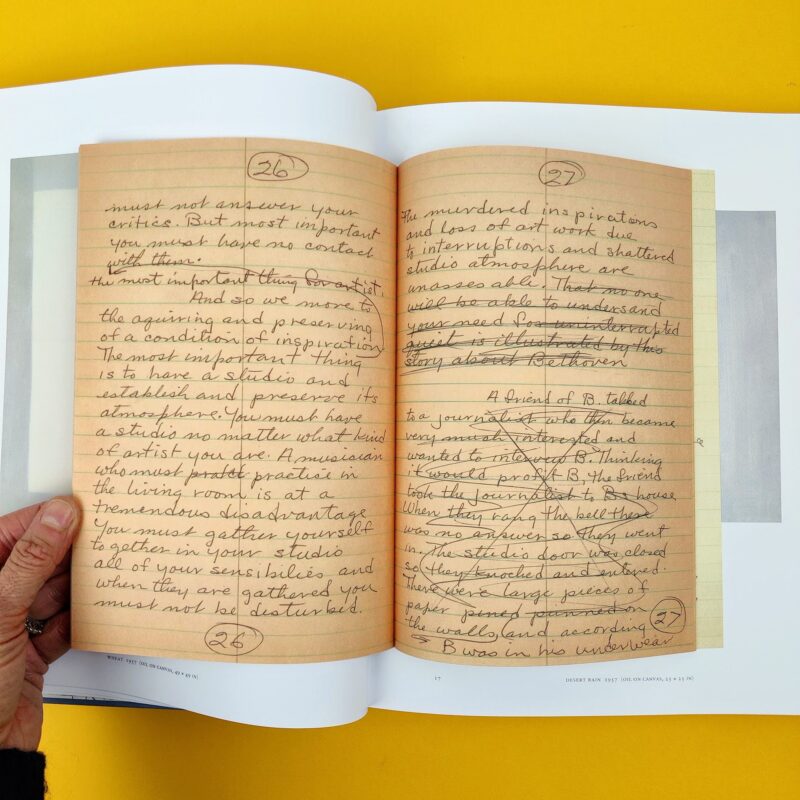 26
must not answer your
critics. But most important
you must have no contact
with them.
the most important thing for artist.
And so we more to
the aquiring and preserving
of a condition of inspiration
The most important thing
is to have a studio and
establish and preserve its
atmosphere. You must have
a studio no matter what kind
of artist you are. A musician
who must practice in
the living room is at a
tremendous disadvantage
You must gather yourself
together in your studio
all of your sensibilies and
when they are gathered you
must not be disturbed.
26
WHEAT 1957 (OIL ON CANVAS, 49 × 49 IN)
27
The murdered inspirations
and loss of art work due
to interruptions and shattered
studio atmosphere are
unassesable. That no one
will be able to undersand
your need for uninterrupted
quiet is illustrated by this
story about Bethoven
A friend of B. talked
to a journalist who then became
very much interested and
wanted to interview B. Thinking
it would profit B, the friend
took the journalist to Bs house
When they rang the bell there
was no answer so they went
in. The studio door was closed
so they knocked and entered.
There were large pieces of
paper pined punned on
the walls, and according
27
B was in his underwear
17
DESERT RAIN 1957 (OIL ON CANVAS, 25 × 25 IN)